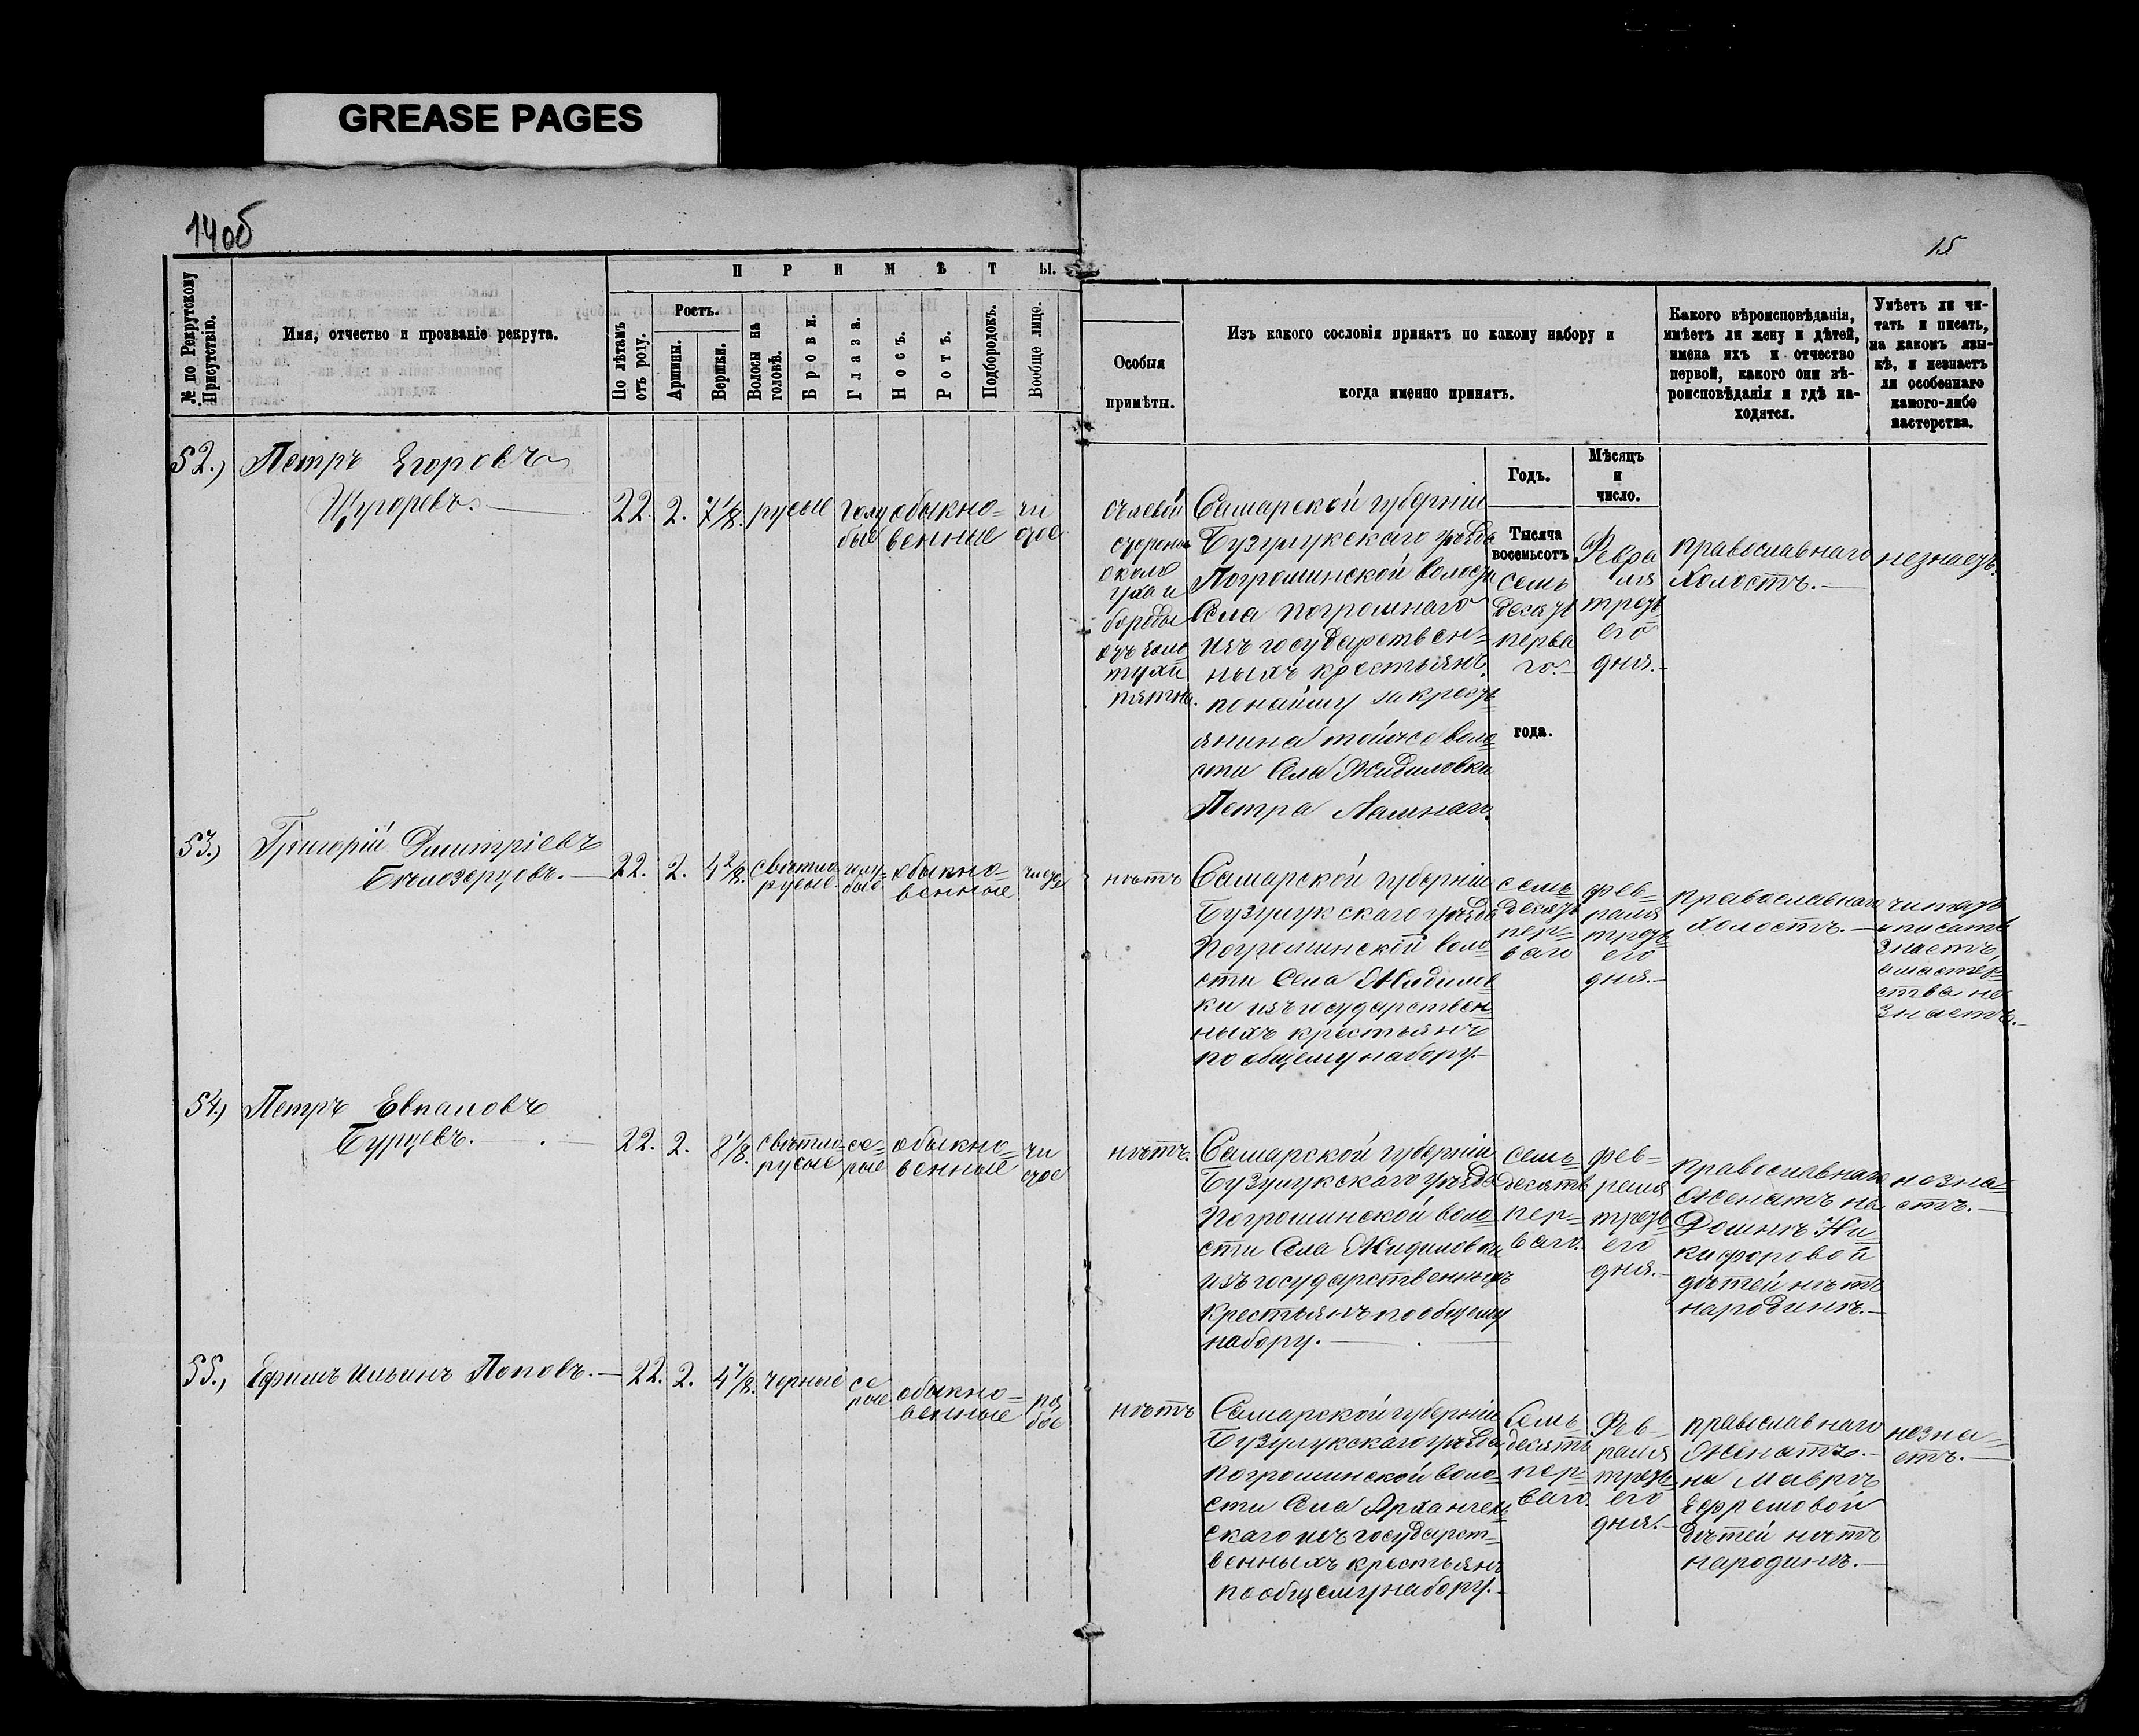 GREASE PAGES
14об
15
№ по Рекрутскому Присутствію.
Имя, отчество и прозваніе рекрута.
ПРИМѢТЫ.
По лѣтамъ отъ роту.
Ростъ.
Аршины.
Вершки.
Волосы на головѣ.
Брови.
Глаза.
Носъ.
Ротъ.
Подбородокъ.
Вообще лице.
Особыя
примѣты.
Изъ какого сословія принятъ по какому набору и
когда именно принятъ.
Какого вѣроисповѣданія,
имѣетъ ли жену и дѣтей,
имена ихъ и отчество
первой, какого они вѣ-
роисповѣданія и гдѣ на-
ходятся.
Умѣетъ ли чи-
тать и писать,
на какомъ язы-
кѣ, и незнаетъ
ли особеннаго
какого-либо
мастерства.
Годъ.
Мѣсяцъ
и
число.
52.) Петръ Егоровъ
Щугоревъ.
22. 2. 7 1/8. русые
голу
бые
обыкно=
венные
чи
стое
съ левой
стороны
около
уха и
бороды
пятна.
Самарской губерніи
Бузулукскаго уѣзда
Погроминской волости
Села Погромнаго
изъ государствен=
ныхъ крестьянъ
по найму за кресть
янина тойже воло
сти Села Жидиловки
Петра
Тысяча
восемьсотъ
семь
десятъ
перва
го.
года.
Февра
ля
треть
его
дня.
православнаго
Холостъ.
незнаетъ.
53.) Григорій Дмитріевъ
Бѣлозерцовъ.
22. 2. 4 2/8.
свѣтло
русые
голу=
бые
обыкно=
венные
чистое
нѣтъ
Самарской губерніи
Бузулукскаго уѣзда
Погроминской воло
сти Села Жидилов
ки изъ государствен
ныхъ крестьянъ
по общему набору.
семь
десятъ
пер=
ваго
фев=
раля
треть
его
дня.
православнаго
холостъ.
читать
и писать
знаетъ,
а мастер=
ства не
знаетъ.
54.) Петръ Евпаловъ
Бурцевъ.
22. 2. 8 1/8.
свѣтло=
русые
се=
рые
обыкно=
венные
чи
стое
нѣтъ.
Самарской губерніи
Бузулукскаго уѣзда
Погроминской воло
сти Села Жидиловки
изъ государственныхъ
крестьянъ по общему
набору.
семь
десять
пер=
ваго.
фев=
раля
треть
его
дня.
православнаго
женатъ на
Домнѣ Ни
кифоровой
дѣтей нѣтъ
народинѣ.
незна=
етъ.
55.) Ефимъ Ильинъ Поповъ.
22. 2. 4 7/8. черные
се
рые
обыкно=
венные
ря
бое
нѣтъ
Самарской губерніи
Бузулукскаго уѣзда
Погроминской воло=
сти Села Архангель
скаго изъ государст=
венныхъ крестьянъ
по общему набору.
Семь
десять
пер=
ваго.
Фев=
раля
треть
его
дня.
православнаго
Женатъ.
на Маврѣ
Ефремовой
дѣтей нѣтъ
народинѣ.
незна=
етъ.